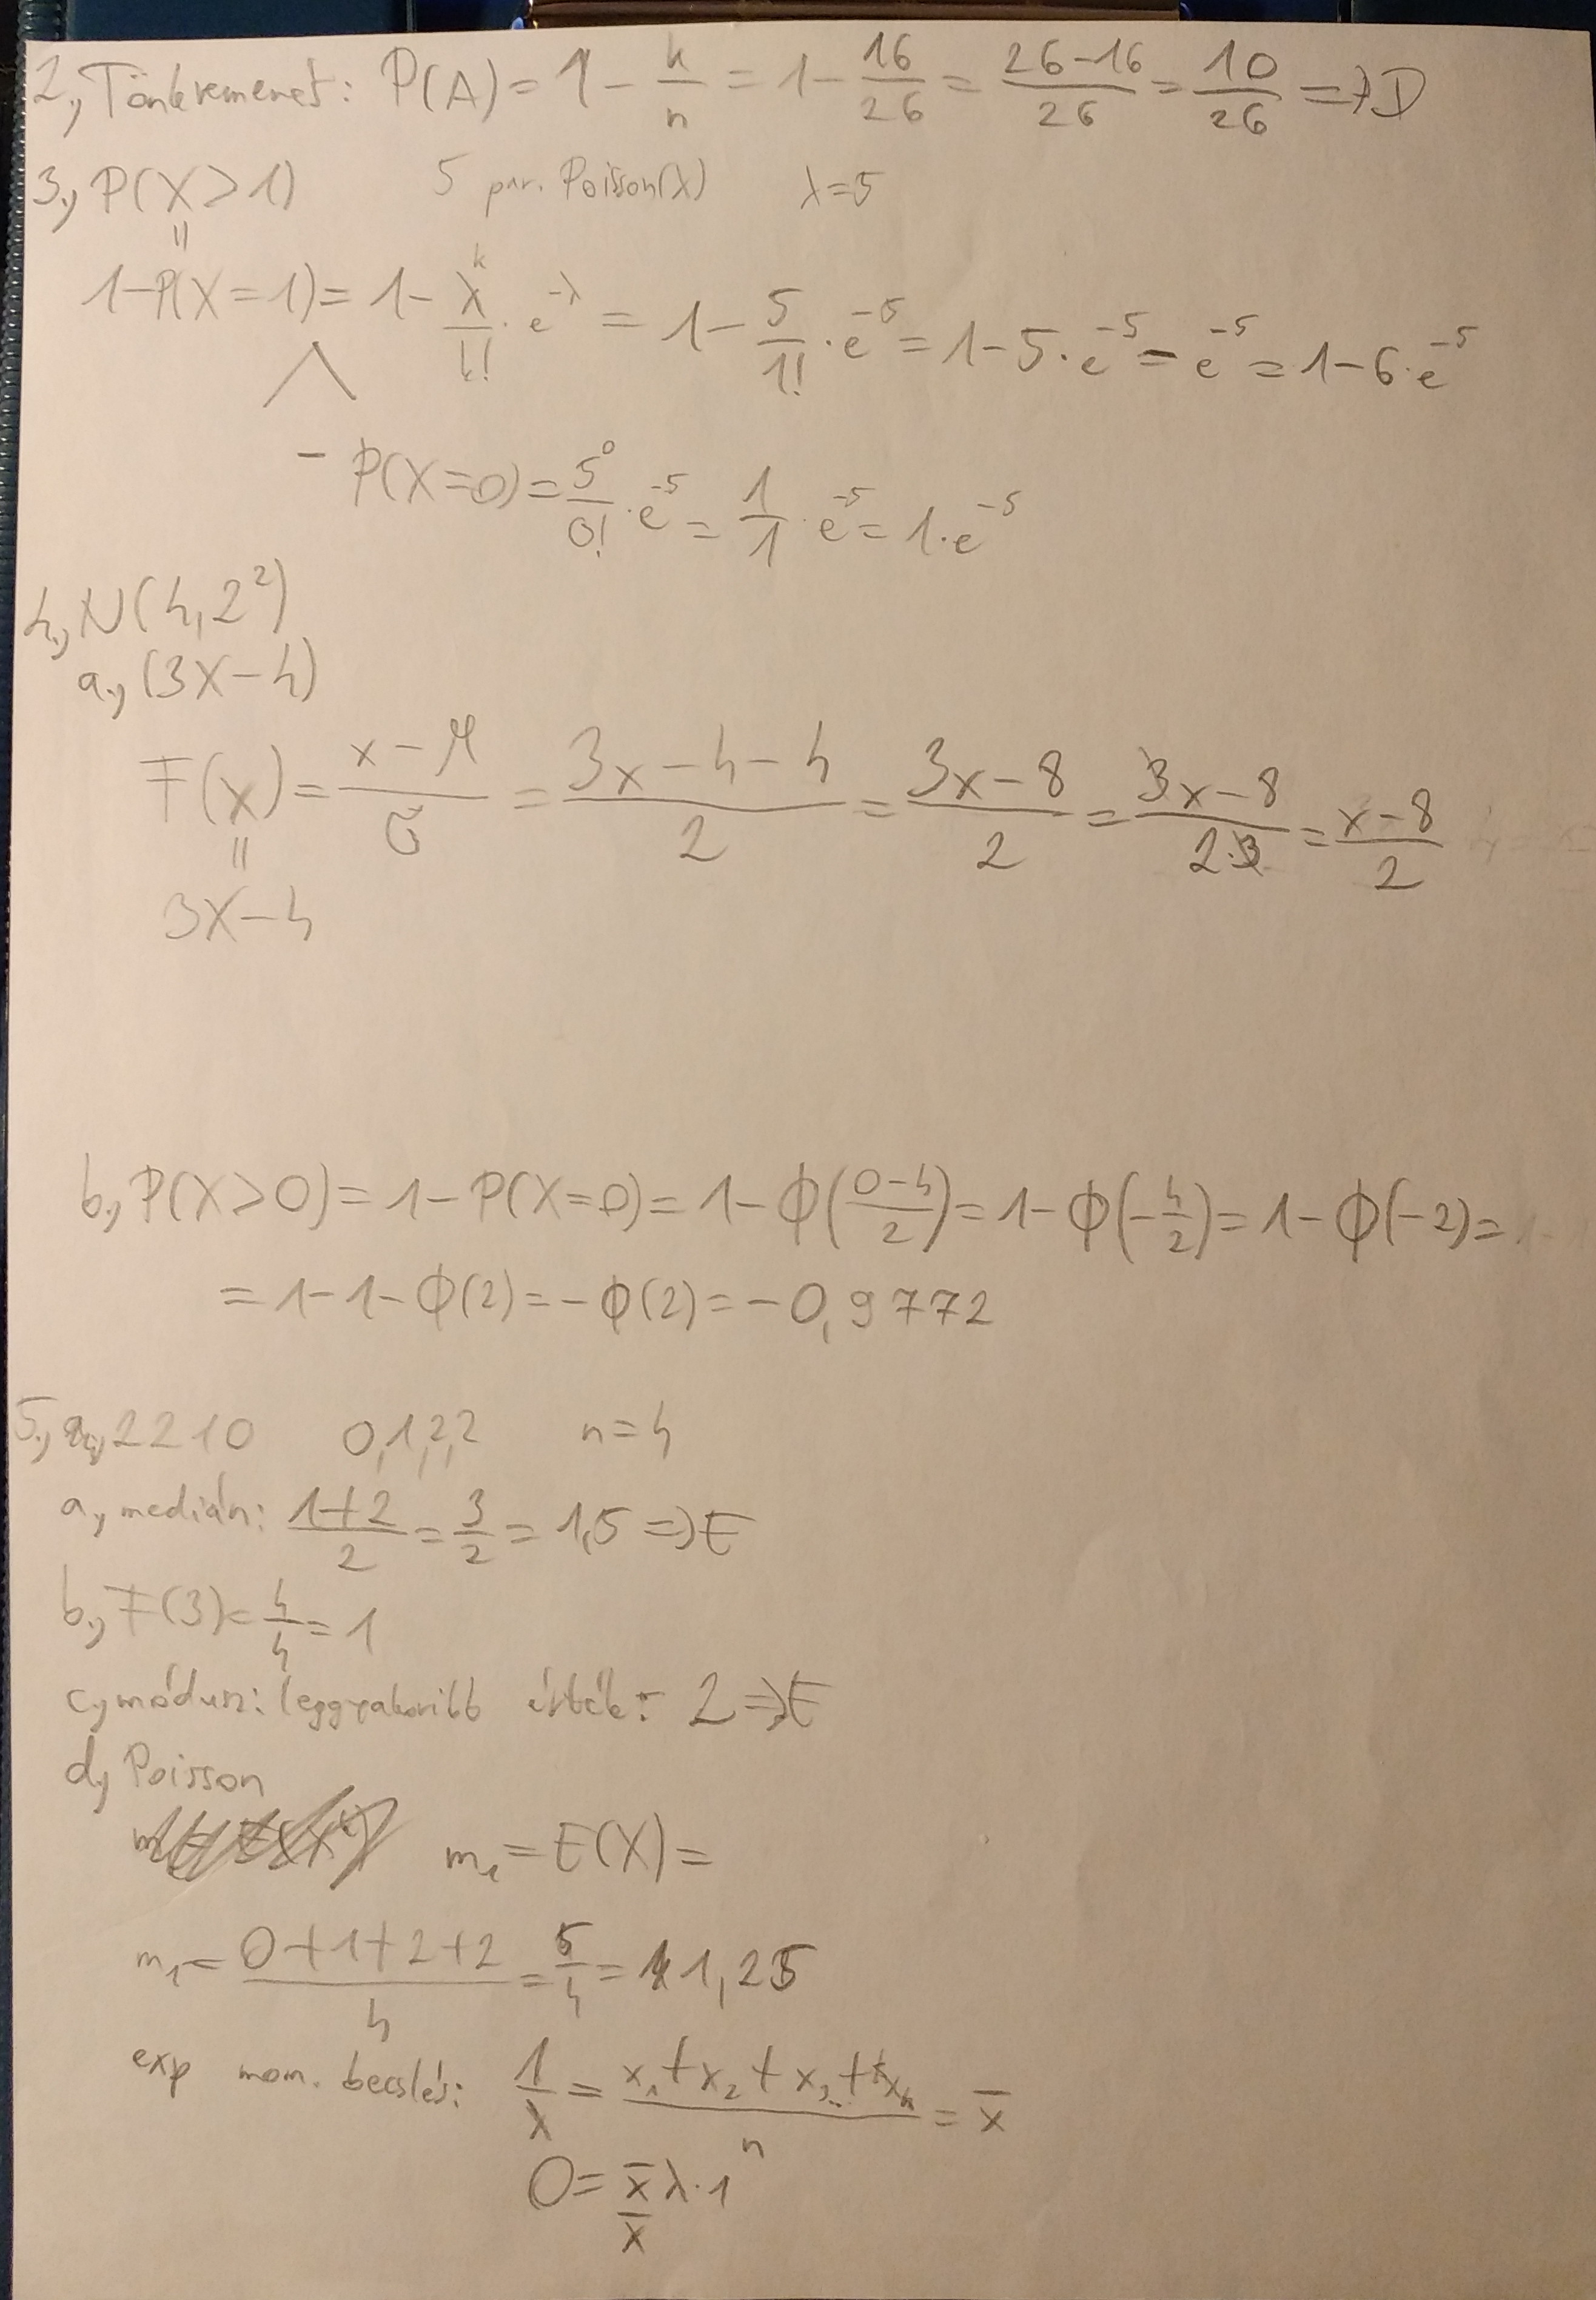 2., Tönkremenet: P(A) = 1 - k/n = 1 - 16/26 = (26-16)/26 = 10/26 => D
3., P(X>1) 5 par. Poisson(λ) λ=5
1-P(X=1) = 1 - λ^k/k! · e^-λ = 1 - 5/1! · e^-5 = 1-5·e^-5 - e^-5 = 1-6·e^-5
- P(X=0) = 5^0/0! · e^-5 = 1/1 · e^-5 = 1·e^-5
4., N(4,2²)
a., (3X-4)
F(x) = (x-μ)/σ = (3x-4-4)/2 = (3x-8)/2 = (3x-8)/(2·3) = (x-8)/2
3X-4
b., P(X>0) = 1 - P(X=0) = 1 - ϕ((0-4)/2) = 1 - ϕ(-4/2) = 1 - ϕ(-2) =
= 1-1-ϕ(2) = -ϕ(2) = -0,9772
5., 2210 0,1,2,2 n=4
a, medián: (1+2)/2 = 3/2 = 1,5 => E
b., F(3) = 4/4 = 1
c, módusz: leggyakoribb érték: 2 => E
d, Poisson
m₁ = E(X) =
m₁ = (0+1+2+2)/4 = 5/4 = 1,25
exp mom. becslés: 1/λ = (x₁+x₂+x₃..+xₙ)/n = x̄
0 = x̄λ·1
x̄